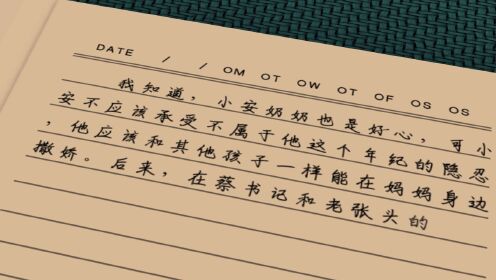 DATE / / OM OT OW OT OF OS OS
我知道，小安奶奶也是好心，可小
安不应该承受不属于他这个年纪的隐忍
，他应该和其他孩子一样能在妈妈身边
撒娇。后来，在蔡书记和老张头的